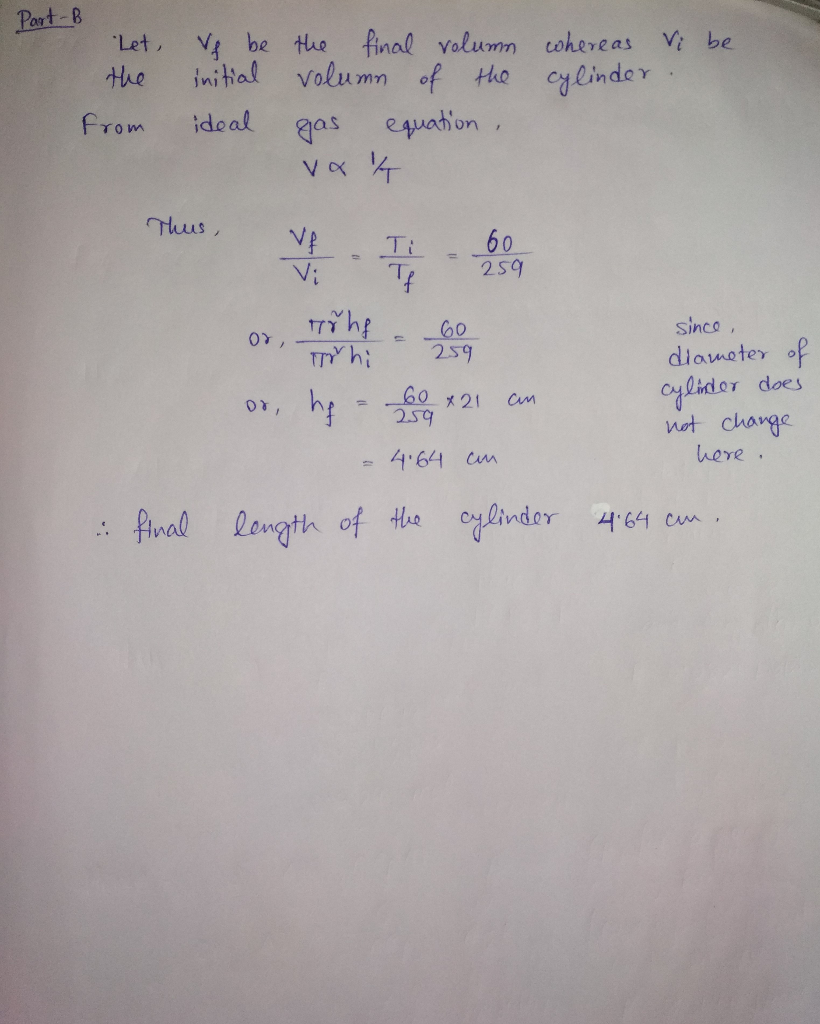 Part-B
Let, Vf be the final volumn whereas Vi be
the initial volumn of the cylinder.
From ideal gas equation,
V ∝ 1/T
Thus, Vf/Vi = Ti/Tf = 60/259
or, πr²hf/πr²hi = 60/259
or, hf = 60/259 × 21 cm
= 4.64 cm
since,
diameter of
cylinder does
not change
here.
∴ final length of the cylinder 4.64 cm.